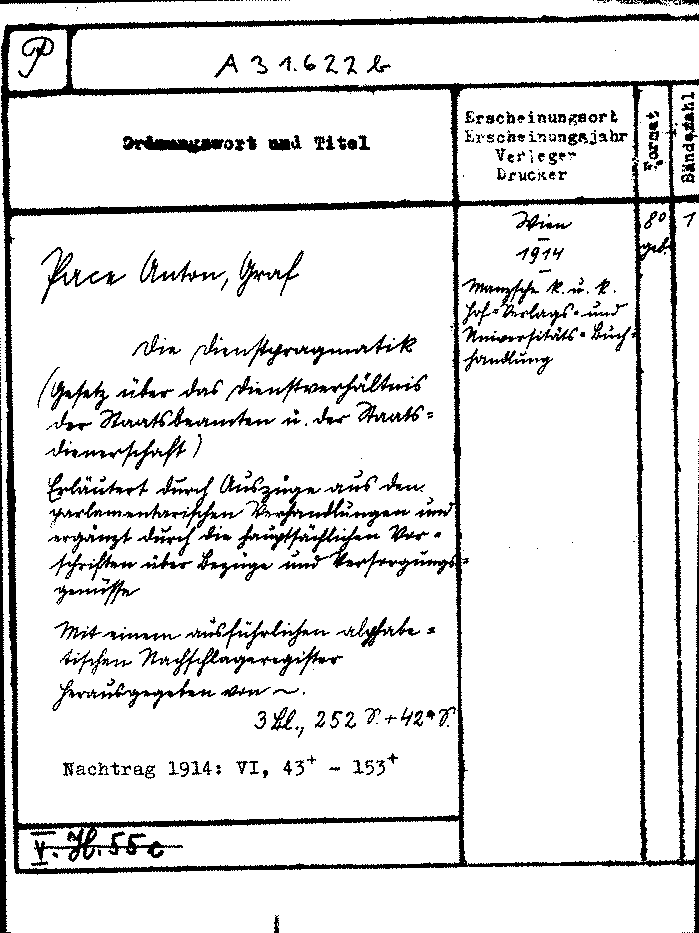 P
A 31.622 b
Ordnungswort und Titel
Erscheinungsort
Erscheinungsjahr
Verleger
Drucker
Format
Bändezahl
Pace Anton, Graf
Die Dienstpragmatik
(Gesetz über das Dienstverhältnis
der Staatsbeamten u. der Staats=
dienerschaft)
Erläutert durch Auszüge aus den
parlamentarischen Verhandlungen und
ergänzt durch die hauptsächlichen Vor=
schriften über Bezüge und Versorgungs=
genüsse
Mit einem ausführlichen alphabe=
tischen Nachschlageregister
herausgegeben von ~.
3 Bl., 252 S. + 42* S.
Nachtrag 1914: VI, 43+ - 153+
Wien
1914
Manzsche k. u. k.
Hof=Verlags= und
Universitäts=Buch=
handlung
8°
geb.
1
V. H. 55 c